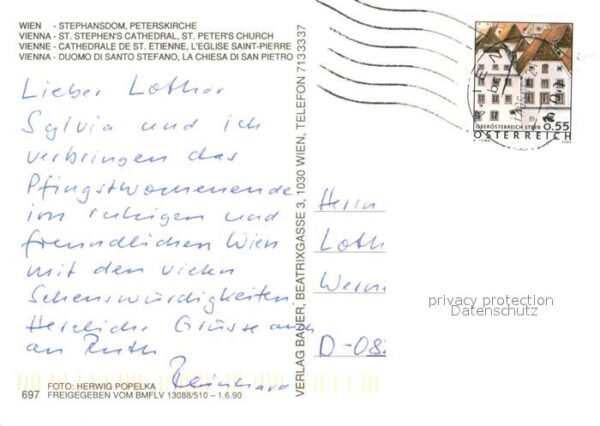 WIEN - STEPHANSDOM, PETERSKIRCHE
VIENNA - ST. STEPHEN'S CATHEDRAL, ST. PETER'S CHURCH
VIENNE - CATHEDRALE DE ST. ETIENNE, L'EGLISE SAINT-PIERRE
VIENNA - DUOMO DI SANTO STEFANO, LA CHIESA DI SAN PIETRO
Lieber Lothar
Sylvia und ich
verbringen das
Pfingstwochenende
im ruhigen und
freundlichen Wien
mit den vielen
Sehenswürdigkeiten.
Herzliche Grüsse auch
an Ruth
Reinhard
697
FOTO: HERWIG POPELKA
FREIGEGEBEN VOM BMFLV 13088/510 – 1.6.90
VERLAG BAUER, BEATRIXGASSE 3, 1030 WIEN, TELEFON 7133337
OBERÖSTERREICH STEYR 0,55
ÖSTERREICH
Herrn
Loth
Werne
D-08
privacy protection
Datenschutz